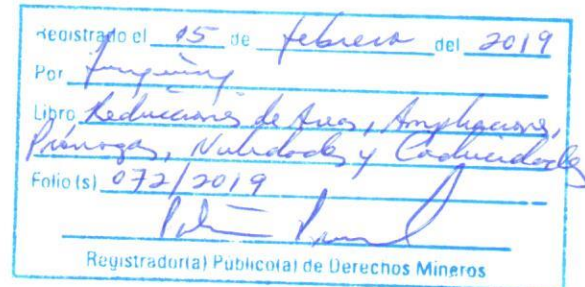 Registrado el 15 de febrero del 2019
Por
Libro Reducciones de Areas, Ampliaciones,
Prórrogas, Nulidades y Caducidades
Folio (s) 072/2019
Registrador(a) Público(a) de Derechos Mineros